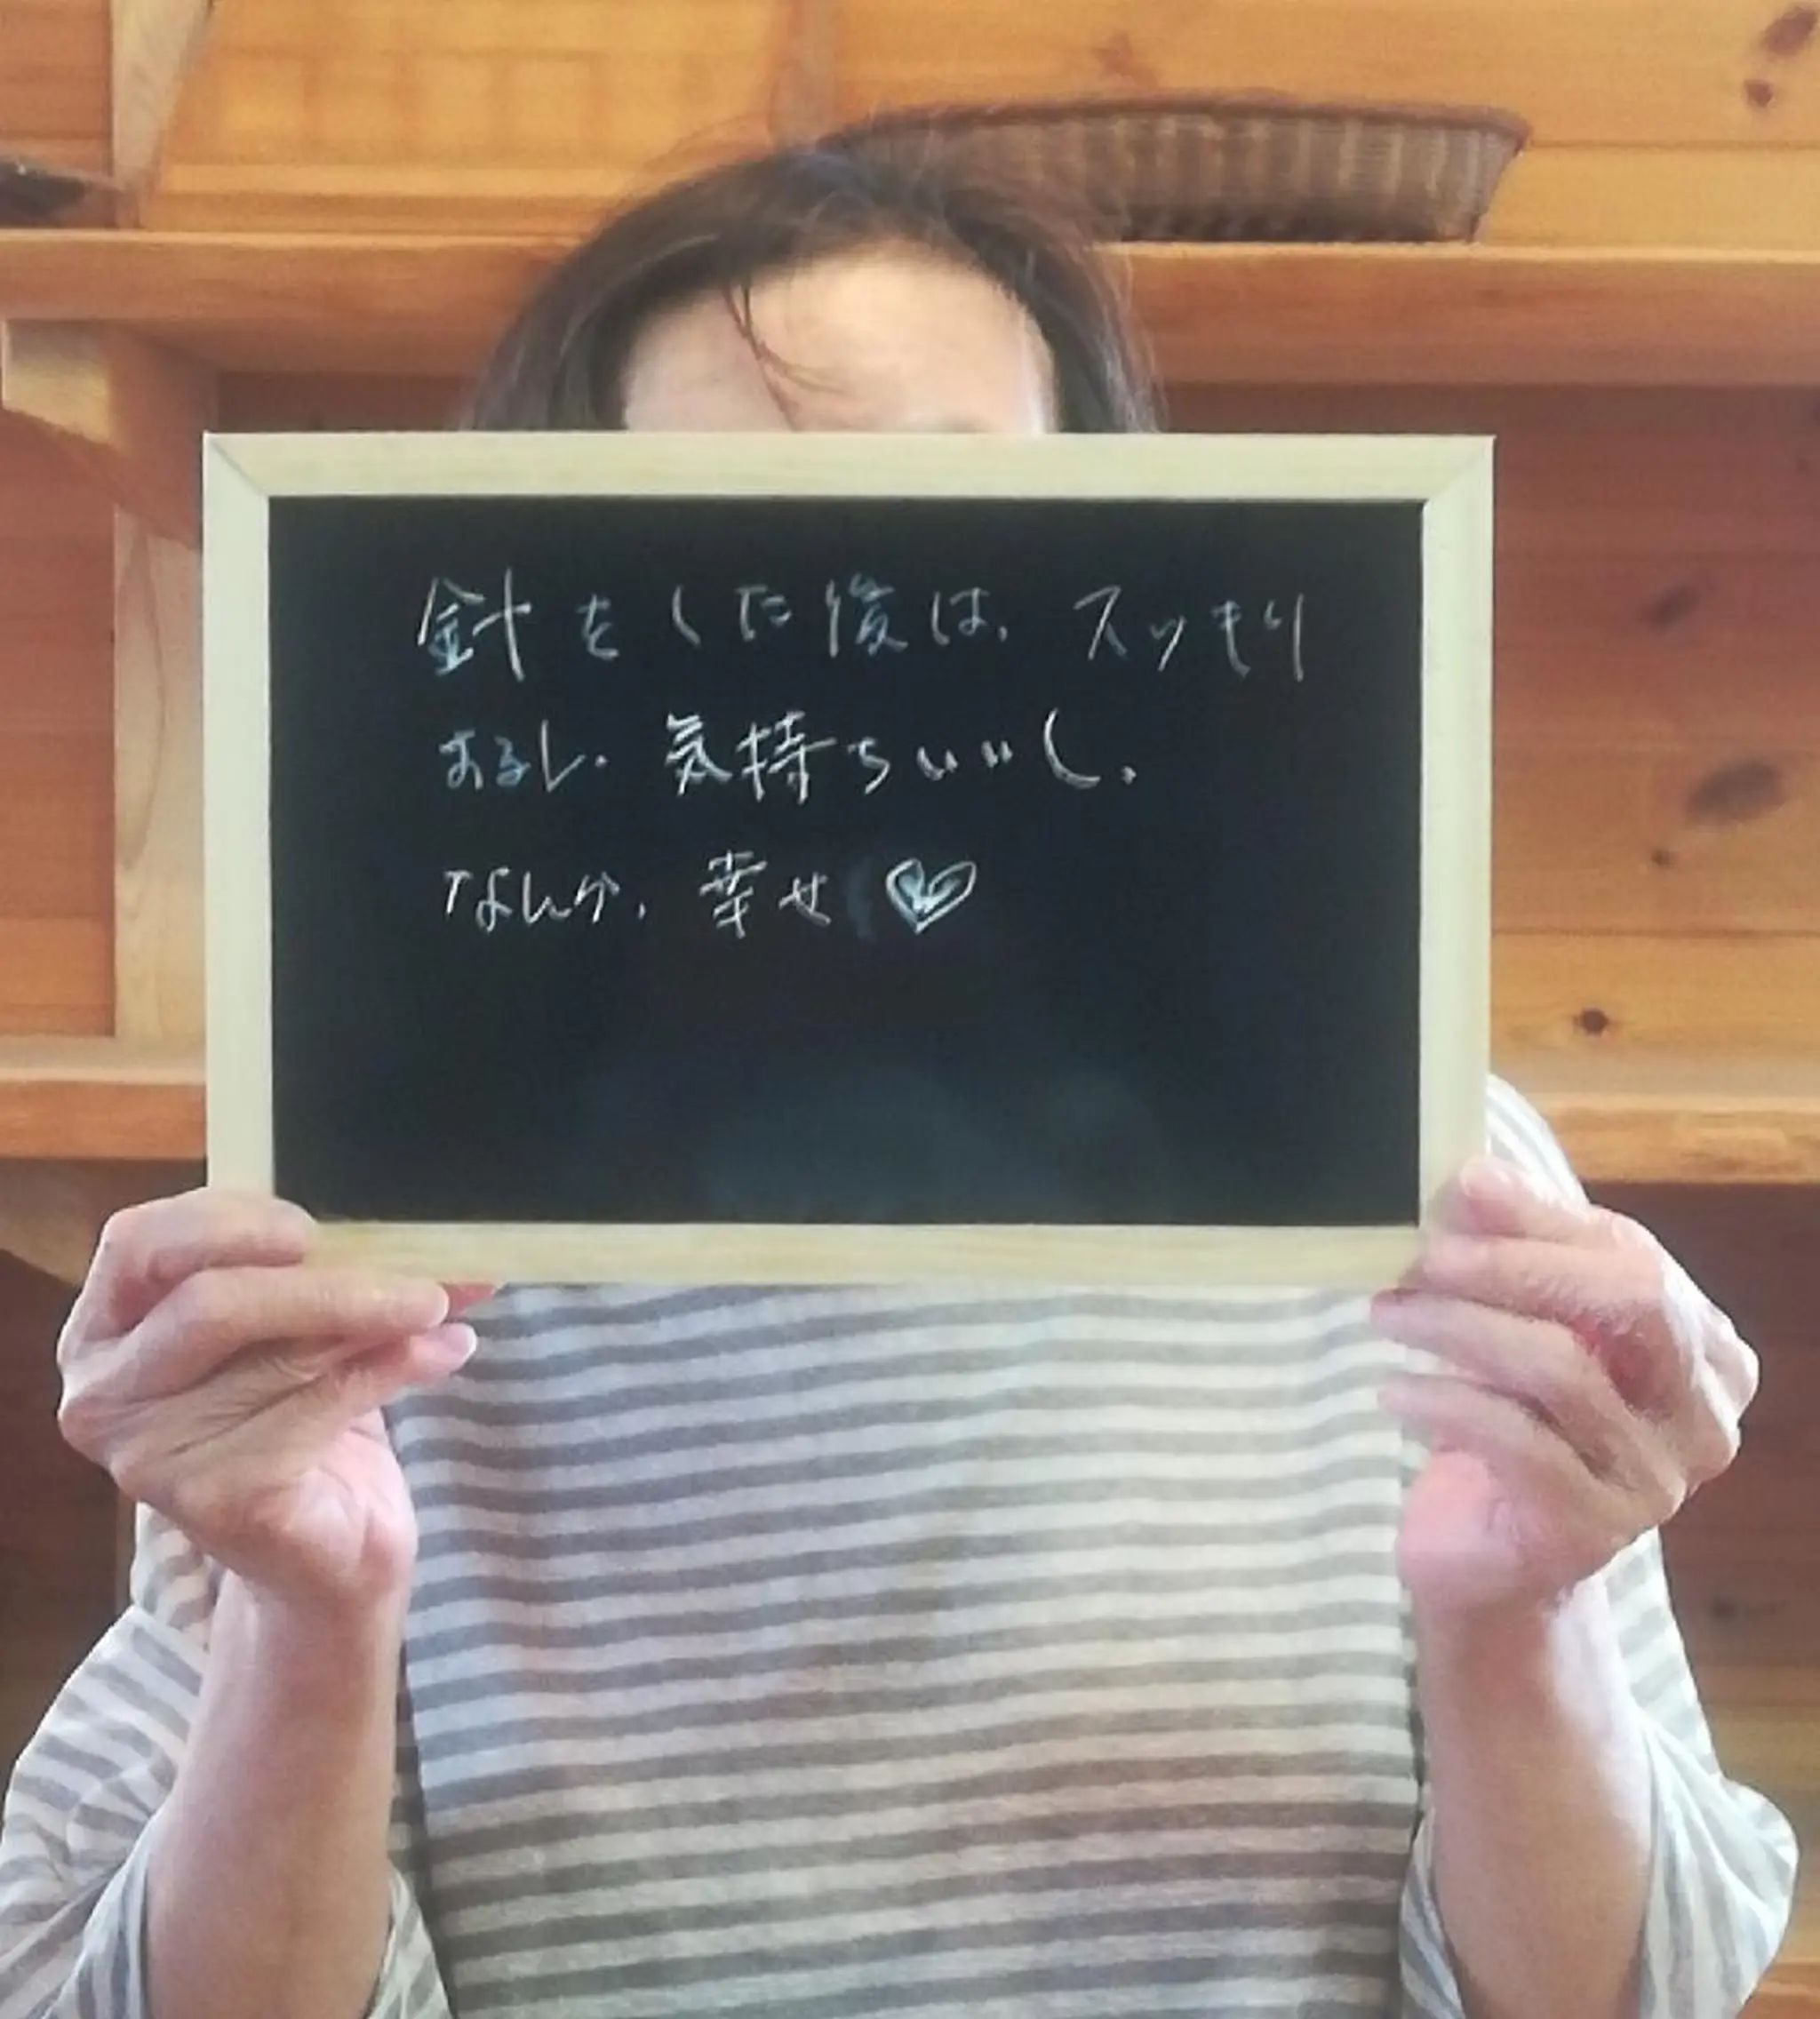 針をした後は、スッキリ
するし、気持ちいいし、
なんか、幸せ♡